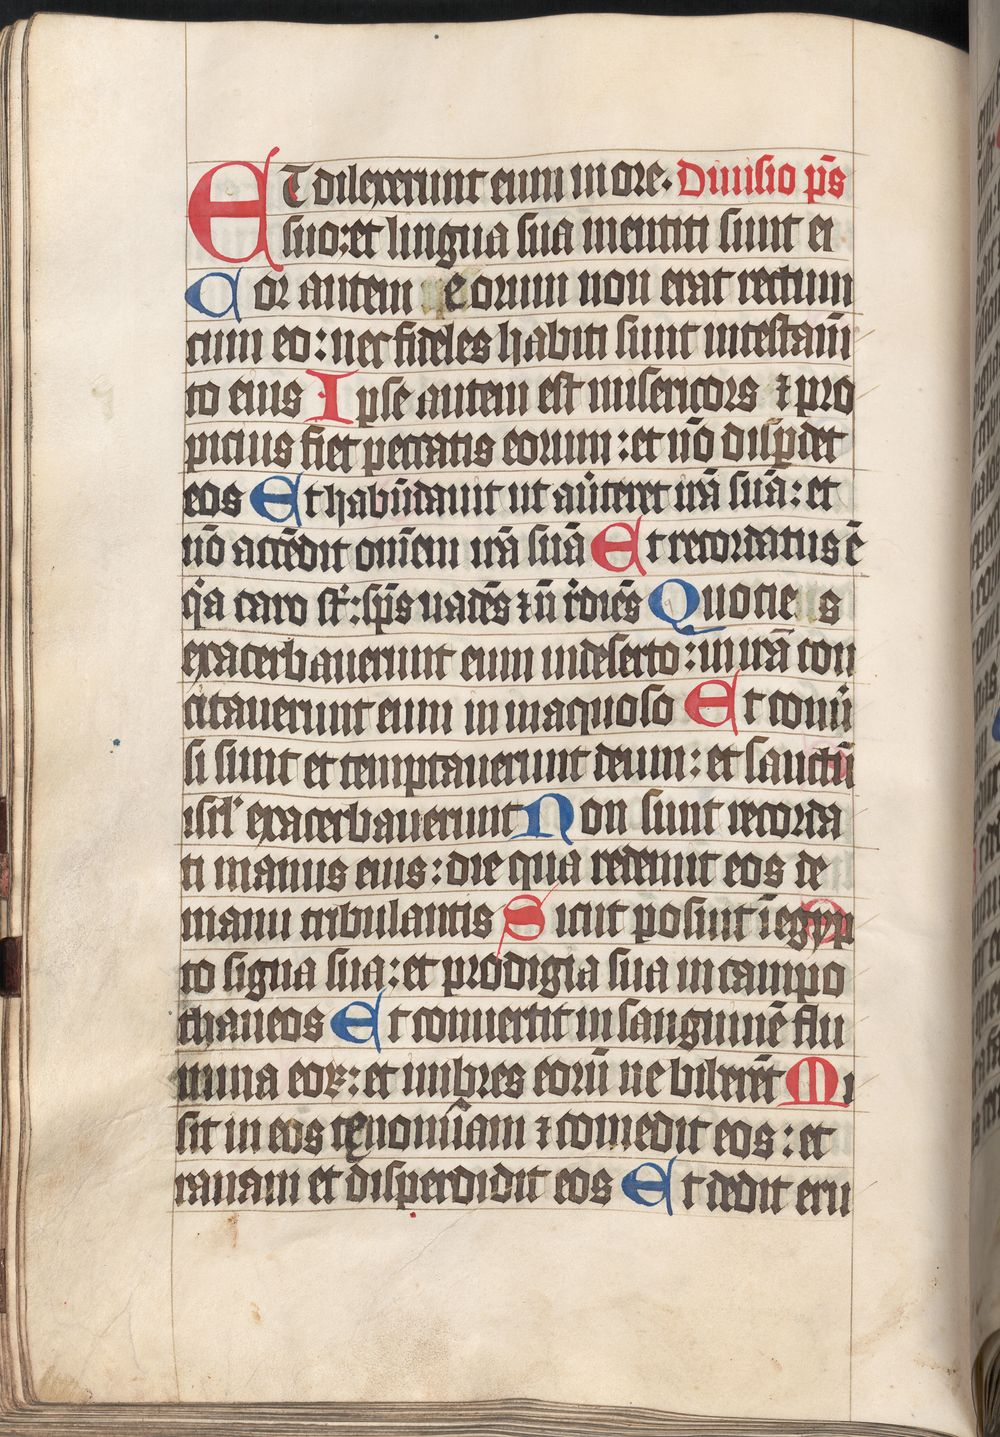 ET dilexerunt eum in ore. Diuisio ps̄
suo: et lingua sua mentiti sunt ei
Cor autem eorum non erat rectum
cum eo: nec fideles habiti sunt in testam̄
to eius Ipse autem est misericors ⁊ pro
picius fiet peccatis eorum: et nō disꝑdet
eos Et habūdauit ut aūteret irā suā: et
nō accēdit omēm irā suā Et recordatus ē
qͥa caro st̄: sp̄s uadēs ⁊ nō rediēs Quotiens
exacerbauerunt eum in deserto: in irā con
citauerunt eum in inaquoso Et conū
si sunt et temptauerunt deum: et sanctū
isrl̓ exacerbauerunt Non sunt recorda
ti manus eius: die qua redemit eos de
manu tribulantis Sicut posuit ī egyp
to signa sua: et prodigia sua in campo
thaneos Et conuertit in sanguinē flu
mina eoꝝ: et imbres eorū ne biberēt Mi
sit in eos cenomīiam ⁊ comedit eos: et
ranam et disperdidit eos Et dedit eru